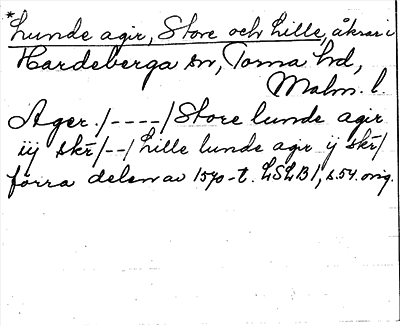 *Lunde agir, Store och Lille, åkrar i
Hardeberga sn, Torna hd,
Malm. l.
Ager. /----/ Store lunde agir
iij skr̄ /--/ Lille lunde agir ij skr̄ /
förra delen av 1570-t. LSLB 1, s. 54. orig.